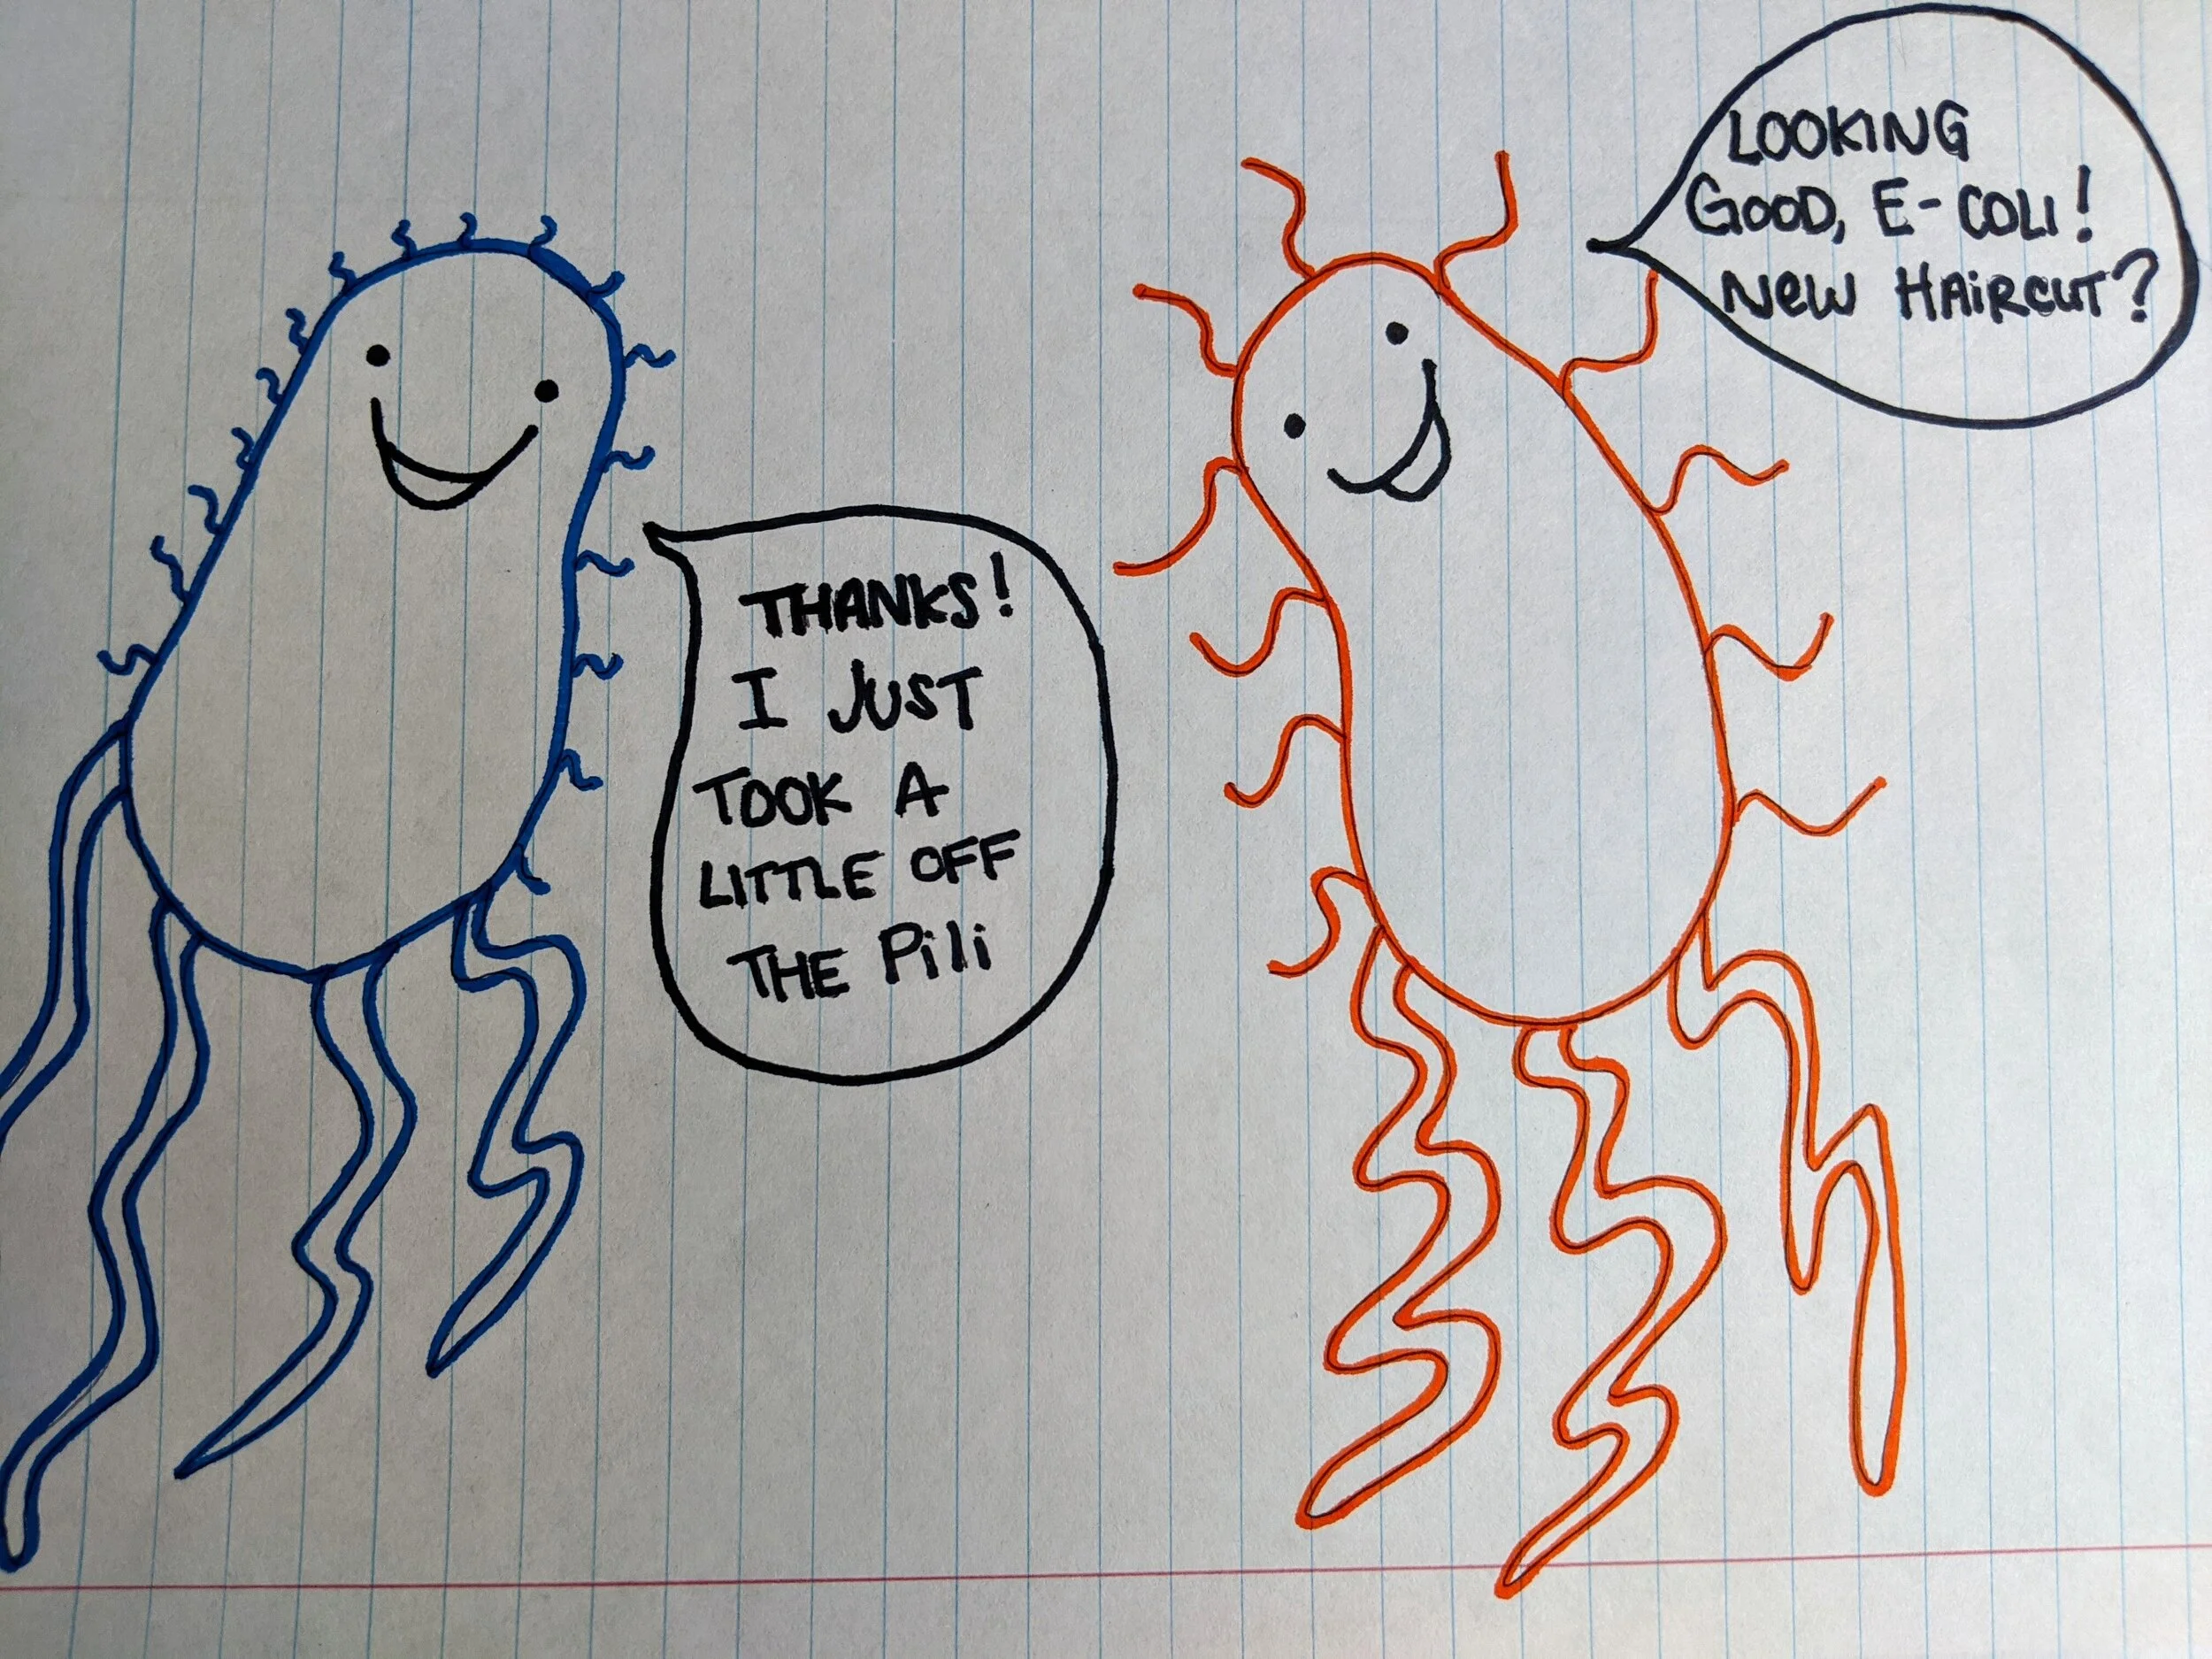 LOOKING
GOOD, E-COLI!
NEW HAIRCUT?
THANKS!
I JUST
TOOK A
LITTLE OFF
THE Pili